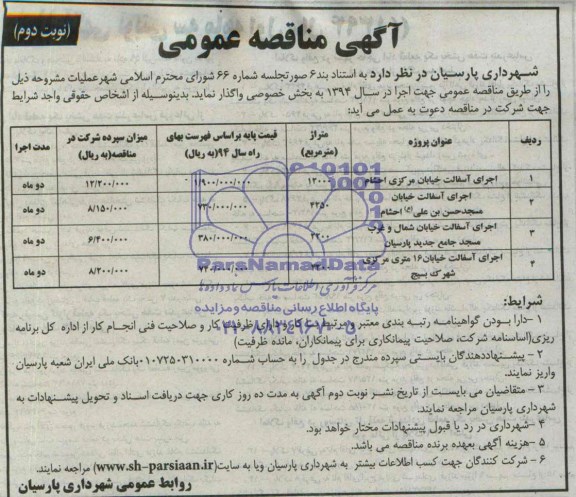 (نوبت دوم)
آگهی مناقصه عمومی
شهرداری پارسیان در نظر دارد به استناد بند ۶ صورتجلسه شماره ۶۶ شورای محترم اسلامی شهر عملیات مشروحه ذیل
را از طریق مناقصه عمومی جهت اجرا در سال ۱۳۹۴ به بخش خصوصی واگذار نماید. بدینوسیله از اشخاص حقوقی واجد شرایط
جهت شرکت در مناقصه دعوت به عمل می آید:
ردیف عنوان پروژه متراژ (مترمربع) قیمت پایه براساس فهرست بهای راه سال ۹۴(به ریال) میزان سپرده شرکت در مناقصه(به ریال) مدت اجرا
۱ اجرای آسفالت خیابان مرکزی احشام ۱۳۰۰۰ ۱/۹۰۰/۰۰۰/۰۰۰ ۱۲/۲۰۰/۰۰۰ دو ماه
۲ اجرای آسفالت خیابان مسجدحسن بن علی(ع) احشام ۴۲۵۰ ۷۳۰/۰۰۰/۰۰۰ ۸/۱۵۰/۰۰۰ دو ماه
۳ اجرای آسفالت خیابان شمال و غرب مسجد جامع جدید پارسیان ۲۲۰۰ ۳۸۰/۰۰۰/۰۰۰ ۶/۴۰۰/۰۰۰ دو ماه
۴ اجرای آسفالت خیابان ۱۶ متری مرکزی شهرک بسیج ۸/۲۰۰/۰۰۰ دو ماه
ParsNamadData
مرکز فرآوری اطلاعات پارس نماد داده ها
پایگاه اطلاع رسانی مناقصه و مزایده
شرایط:
۱-دارا بودن گواهینامه رتبه بندی معتبر و مرتبط کار و صلاحیت فنی انجام کار از اداره کل برنامه
ریزی(اساسنامه شرکت، صلاحیت پیمانکاری برای پیمانکاران، مانده ظرفیت)
۲- پیشنهاددهندگان بایستی سپرده مندرج در جدول را به حساب شماره ۰۱۰۷۲۵۰۳۱۰۰۰۰ بانک ملی ایران شعبه پارسیان
واریز نمایند.
۳- متقاضیان می بایست از تاریخ نشر نوبت دوم آگهی به مدت ده روز کاری جهت دریافت اسناد و تحویل پیشنهادات به
شهرداری پارسیان مراجعه نمایند.
۴-شهرداری در رد یا قبول پیشنهادات مختار خواهد بود.
۵-هزینه آگهی بعهده برنده مناقصه می باشد.
۶- شرکت کنندگان جهت کسب اطلاعات بیشتر به شهرداری پارسیان ویا به سایت(www.sh-parsiaan.ir) مراجعه نمایند.
روابط عمومی شهرداری پارسیان